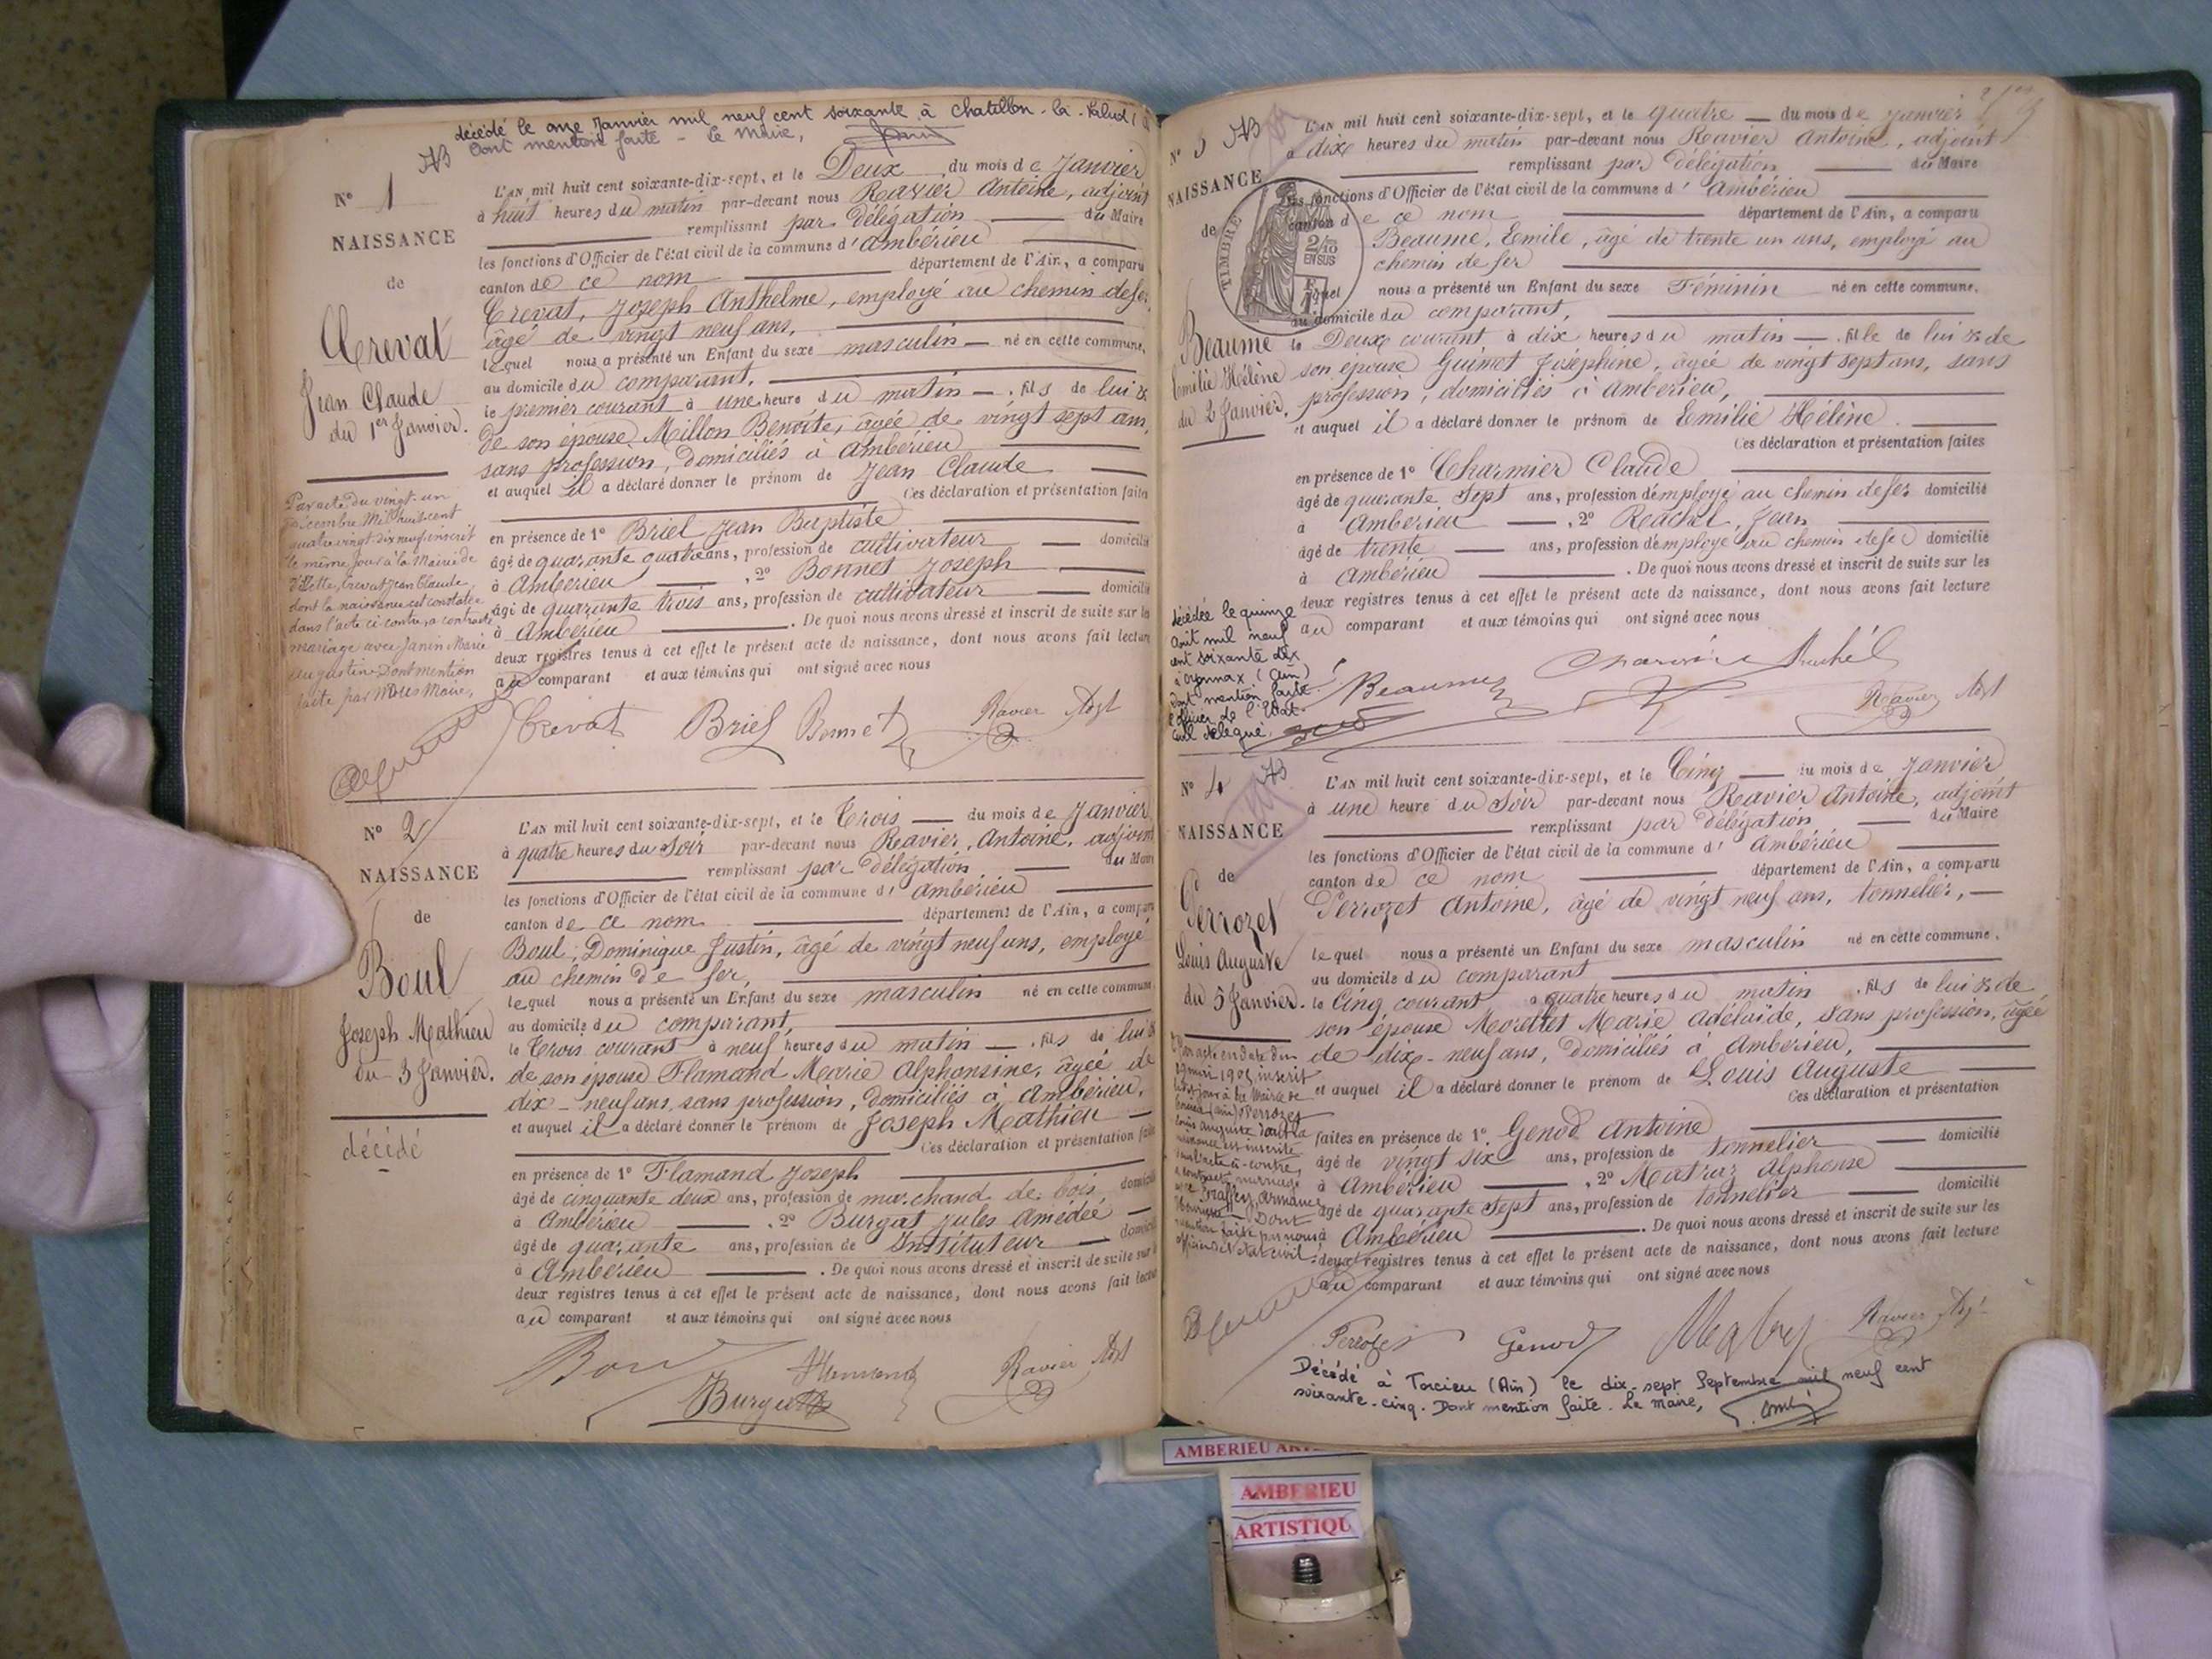 décédé le onze Janvier mil neuf cent soixante à Chatillon-la-Palud
dont mention faite - Le Maire,
N° 1
NAISSANCE
de
Crevat
Jean Claude
du 1er Janvier.
L'AN mil huit cent soixante-dix-sept, et le Deux du mois de Janvier
à huit heures du matin par-devant nous Ravier Antoine, adjoint
remplissant par délégation du Maire
les fonctions d'Officier de l'état civil de la commune d'Ambérieu
canton de ce nom département de l'Ain, a comparu
Crevat, Joseph Anthelme, employé au chemin de fer
âgé de vingt neuf ans,
lequel nous a présenté un Enfant du sexe masculin né en cette commune,
au domicile du comparant,
le premier courant à une heure du matin , fils de lui &
de son épouse Millon Benoîte, âgée de vingt sept ans,
sans profession, domiciliés à Ambérieu
et auquel il a déclaré donner le prénom de Jean Claude
Ces déclaration et présentation faites
en présence de 1° Briel Jean Baptiste
âgé de quarante quatre ans, profession de cultivateur domicilié
à Ambérieu , 2° Bonnet Joseph
âgé de quarante trois ans, profession de cultivateur domicilié
à Ambérieu . De quoi nous avons dressé et inscrit de suite sur les
deux registres tenus à cet effet le présent acte de naissance, dont nous avons fait lecture
au comparant et aux témoins qui ont signé avec nous
Par acte du vingt-un
décembre Mil huit cent
quatre vingt dix neuf inscrit
le même jour à la Mairie de
Crevat Jean Claude,
dont la naissance est constatée
dans l'acte ci-contre, a contracté
mariage avec Janin Marie
Augustine Dont mention
faite par Nous Maire,
Crevat Briel Bonnet Ravier Adjt
N° 2
NAISSANCE
de
Boul
Joseph Mathieu
du 3 Janvier.
décédé
L'AN mil huit cent soixante-dix-sept, et le Trois du mois de Janvier
à quatre heures du Soir par-devant nous Ravier, Antoine, adjoint
remplissant par délégation du Maire
les fonctions d'Officier de l'état civil de la commune d'Ambérieu
canton de ce nom département de l'Ain, a comparu
Boul, Dominique Justin, âgé de vingt neuf ans, employé
au chemin de fer,
lequel nous a présenté un Enfant du sexe masculin né en cette commune
au domicile du comparant,
le Trois courant à neuf heures du matin , fils de lui &
de son épouse Flamand Marie Alphonsine, âgée de
dix-neuf ans, sans profession, domiciliés à Ambérieu,
et auquel il a déclaré donner le prénom de Joseph Mathieu
Ces déclaration et présentation faites
en présence de 1° Flamand Joseph
âgé de cinquante deux ans, profession de marchand de bois, domicilié
à Ambérieu , 2° Burgat Jules Amédée
âgé de quarante ans, profession de Instituteur domicilié
à Ambérieu . De quoi nous avons dressé et inscrit de suite sur
deux registres tenus à cet effet le présent acte de naissance, dont nous avons fait lecture
au comparant et aux témoins qui ont signé avec nous
Boul Flamand Ravier Adjt
Burgat
N° 3
NAISSANCE
de
TIMBRE
2/10
EN SUS
Beaume
Emilie Hélène
du 2 Janvier.
L'AN mil huit cent soixante-dix-sept, et le quatre du mois de Janvier
à dix heures du matin par-devant nous Ravier Antoine, adjoint
remplissant par délégation du Maire
les fonctions d'Officier de l'état civil de la commune d'Ambérieu
canton de ce nom département de l'Ain, a comparu
Beaume, Emile, âgé de trente un ans, employé au
chemin de fer
lequel nous a présenté un Enfant du sexe Féminin né en cette commune,
au domicile du comparant,
le Deux courant à dix heures du matin , fille de lui & de
son épouse Guinet Joséphine, âgée de vingt sept ans, sans
profession, domiciliés à Ambérieu,
et auquel il a déclaré donner le prénom de Emilie Hélène
Ces déclaration et présentation faites
en présence de 1° Charmier Claude
âgé de quarante Sept ans, profession d'employé au chemin de fer domicilié
à Ambérieu , 2° Rachel, Jean
âgé de trente ans, profession d'employé au chemin de fer domicilié
à Ambérieu . De quoi nous avons dressé et inscrit de suite sur les
deux registres tenus à cet effet le présent acte de naissance, dont nous avons fait lecture
au comparant et aux témoins qui ont signé avec nous
décédée le quinze
Août mil neuf
cent soixante dix
à Oyonnax (Ain)
dont mention faite
l'Officier de l'Etat-
civil délégué,
Beaume Charmier Rachel
Ravier Adjt
N° 4
NAISSANCE
de
Perrozet
Louis Auguste
du 5 Janvier.
L'AN mil huit cent soixante-dix-sept, et le Cinq du mois de Janvier
à une heure du Soir par-devant nous Ravier Antoine, adjoint
remplissant par délégation du Maire
les fonctions d'Officier de l'état civil de la commune d'Ambérieu
canton de ce nom département de l'Ain, a comparu
Perrozet Antoine, âgé de vingt neuf ans, tonnelier,
lequel nous a présenté un Enfant du sexe masculin né en cette commune,
au domicile du comparant
le Cinq courant à quatre heures du matin , fils de lui & de
son épouse Morellet Marie Adélaïde, sans profession, âgée
de dix-neuf ans, domiciliés à Ambérieu,
et auquel il a déclaré donner le prénom de Louis Auguste
Ces déclaration et présentation
faites en présence de 1° Genod Antoine
âgé de vingt six ans, profession de tonnelier domicilié
à Ambérieu , 2° Matraz Alphonse
âgé de quarante Sept ans, profession de tonnelier domicilié
à Ambérieu . De quoi nous avons dressé et inscrit de suite sur les
deux registres tenus à cet effet le présent acte de naissance, dont nous avons fait lecture
au comparant et aux témoins qui ont signé avec nous
Par acte en date du
inscrit
Perrozet
Louis Auguste dont la
naissance est inscrite
dans l'acte ci-contre,
a contracté mariage
Dont
mention faite par nous
officier de l'état civil
Perrozet Genod Ravier Adjt
Décédé à Torcieu (Ain) le dix-sept Septembre mil neuf cent
soixante-cinq. Dont mention faite. Le Maire,
AMBERIEU
AMBERIEU
ARTISTIQU